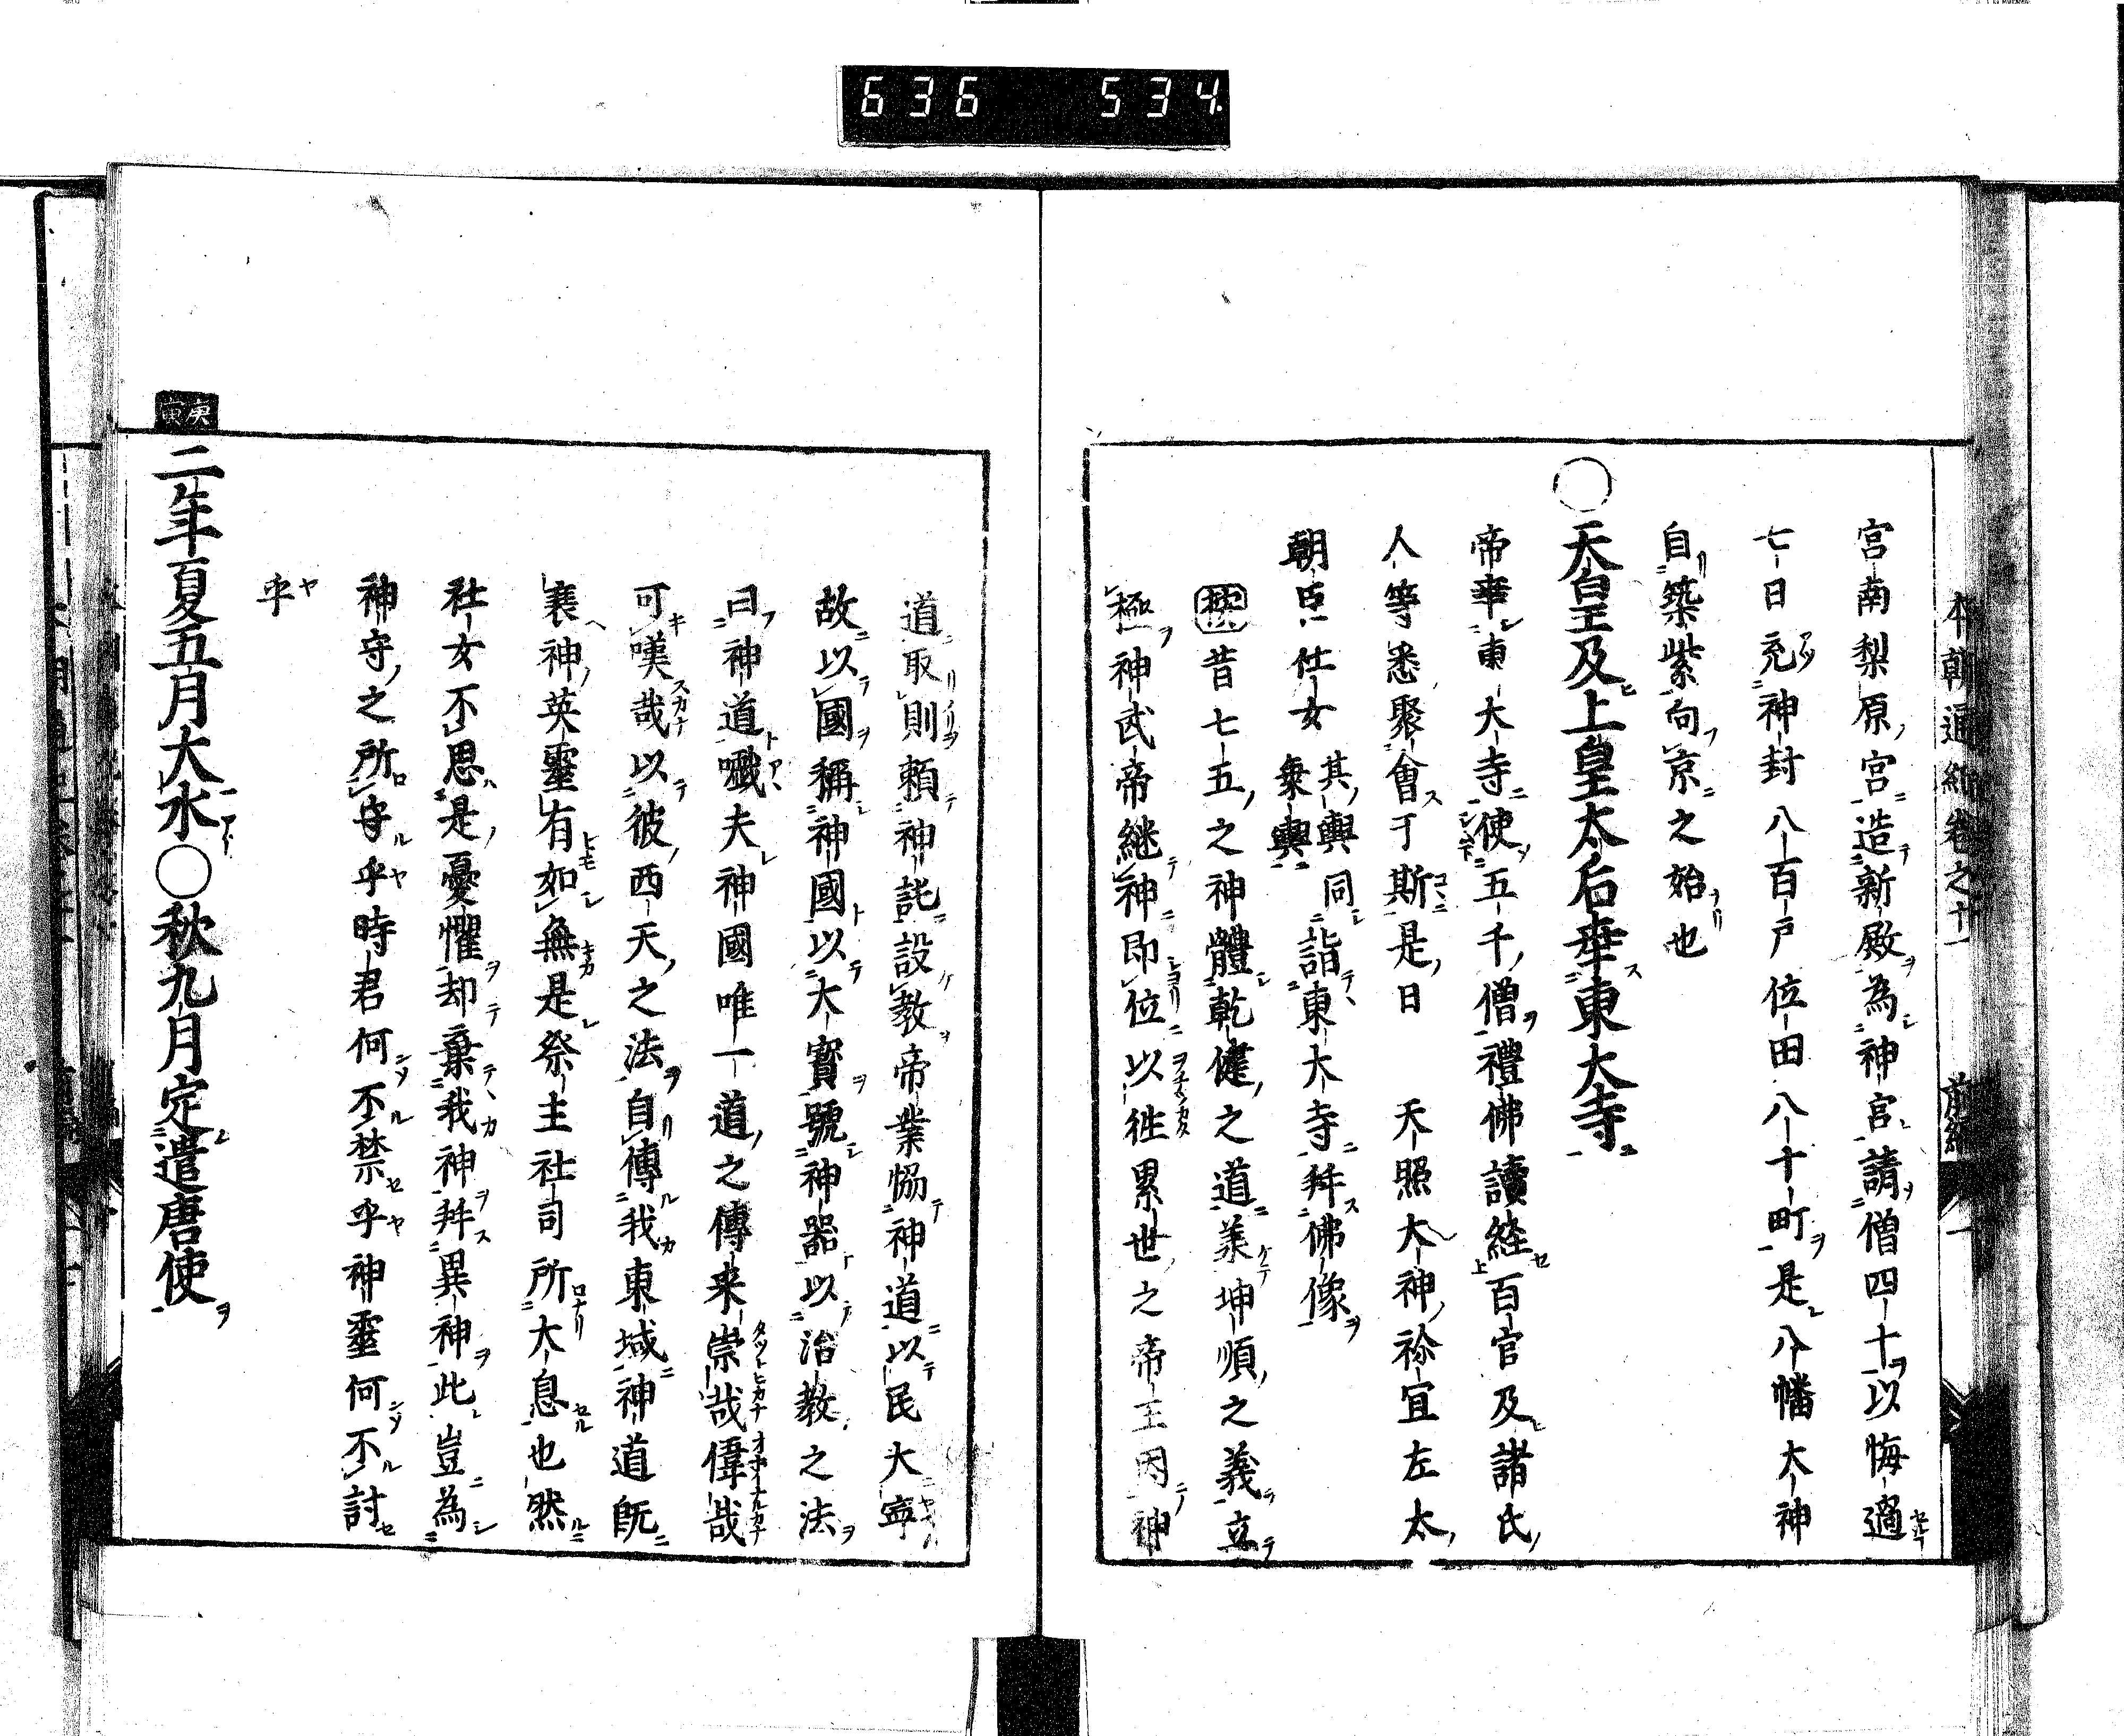 636 534
本朝通紀卷之十一 前編
宮南梨原宮造新殿為神宮請僧四十以悔過
七日充神封八百戸位田八十町是八幡大神
自築紫向京之始也
○天皇及上皇太后幸東大寺
帝幸東大寺使五千僧禮佛讀經百官及諸氏
人等悉聚會于斯是日 天照大神祢宜左太
朝臣仕女其輿乗輿同詣東大寺拜佛像
昔七五之神體乾健之道兼坤順之義立
極神武帝継神即位以徃累世之帝王因神
道取則頼神託設教帝業恊神道以民大寧
故以國稱神國以大寳號神器以治教之法
曰神道嚱夫神國唯一道之傳来崇哉偉哉
可嘆哉以彼西天之法自傳我東域神道既
衰神英靈有如無是祭主社司所大息也然
社女不思是憂懼却棄我神拜異神此豈為
神守之所守乎時君何不禁乎神靈何不討
乎
庚寅
二年夏五月大水○秋九月定遣唐使